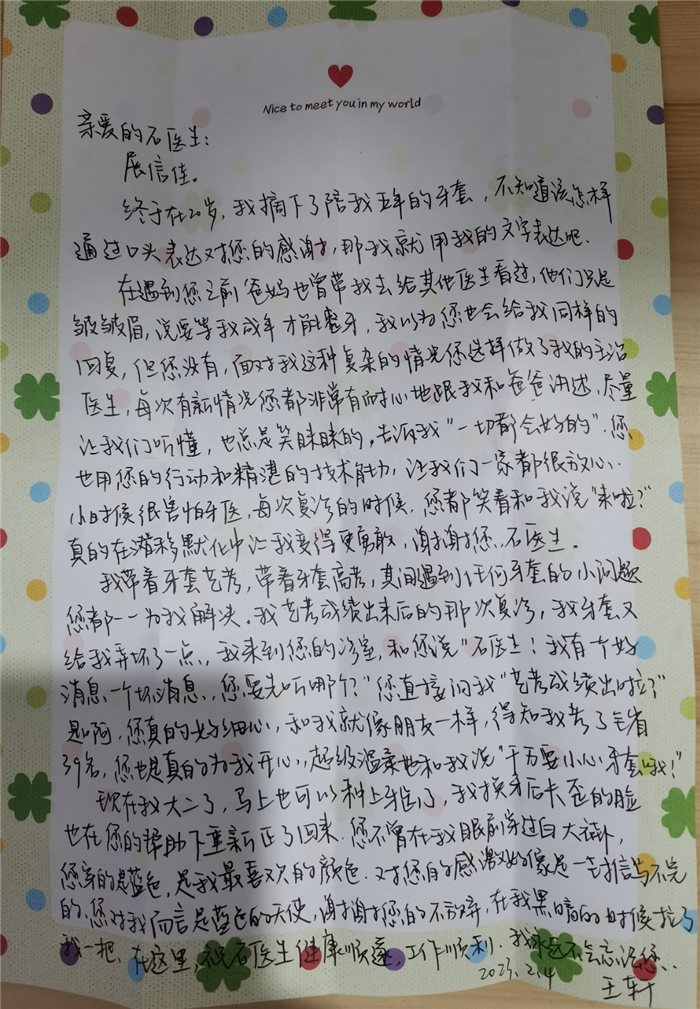 Nice to meet you in my world
亲爱的石医生：
展信佳。
终于在20岁，我摘下了陪我五年的牙套，不知道该怎样
通过口头表达对您的感谢，那我就用我的文字表达吧．
在遇到您之前爸妈也曾带我去给其他医生看过，他们只是
皱皱眉，说要等我成年才能整牙，我以为您也会给我同样的
回复，但您没有，面对我这种复杂的情况您选择做了我的主治
医生，每次有新情况您都非常有耐心地跟我和爸爸讲述，尽量
让我们听懂，也总是笑眯眯的，告诉我"一切都会好的"．您
也用您的行动和精湛的技术能力，让我们一家都很放心．
小时候很害怕牙医，每次复诊的时候，您都笑着和我说"来啦？"
真的在潜移默化中让我变得更勇敢，谢谢您，石医生．
我带着牙套艺考，带着牙套高考，其间遇到任何牙套的小问题
您都一一为我解决．我艺考成绩出来后的那次复诊，我牙套又
给我弄坏了一点，我来到您的诊室，和您说"石医生！我有一个好
消息一个坏消息，您要先听哪个？"您直接问我"艺考成绩出啦？"
是啊，您真的好细心，和我就像朋友一样，得知我考了全省
39名，您也是真的为我开心，超级温柔地和我说"千万要小心牙套哦！"
现在我大二了，马上也可以种上牙齿了，我换牙后长歪的脸
也在您的帮助下重新正了回来．您不曾在我眼前穿过白大褂，
您穿的是蓝色，是我最喜欢的颜色．对您的感激好像是一封信写不完
的，您对我而言是蓝色的天使，谢谢您的不放弃，在我黑暗的时候拉了
我一把．在这里，祝石医生健康顺遂，工作顺利．我永远不会忘记您．
2023.2.4
王轩